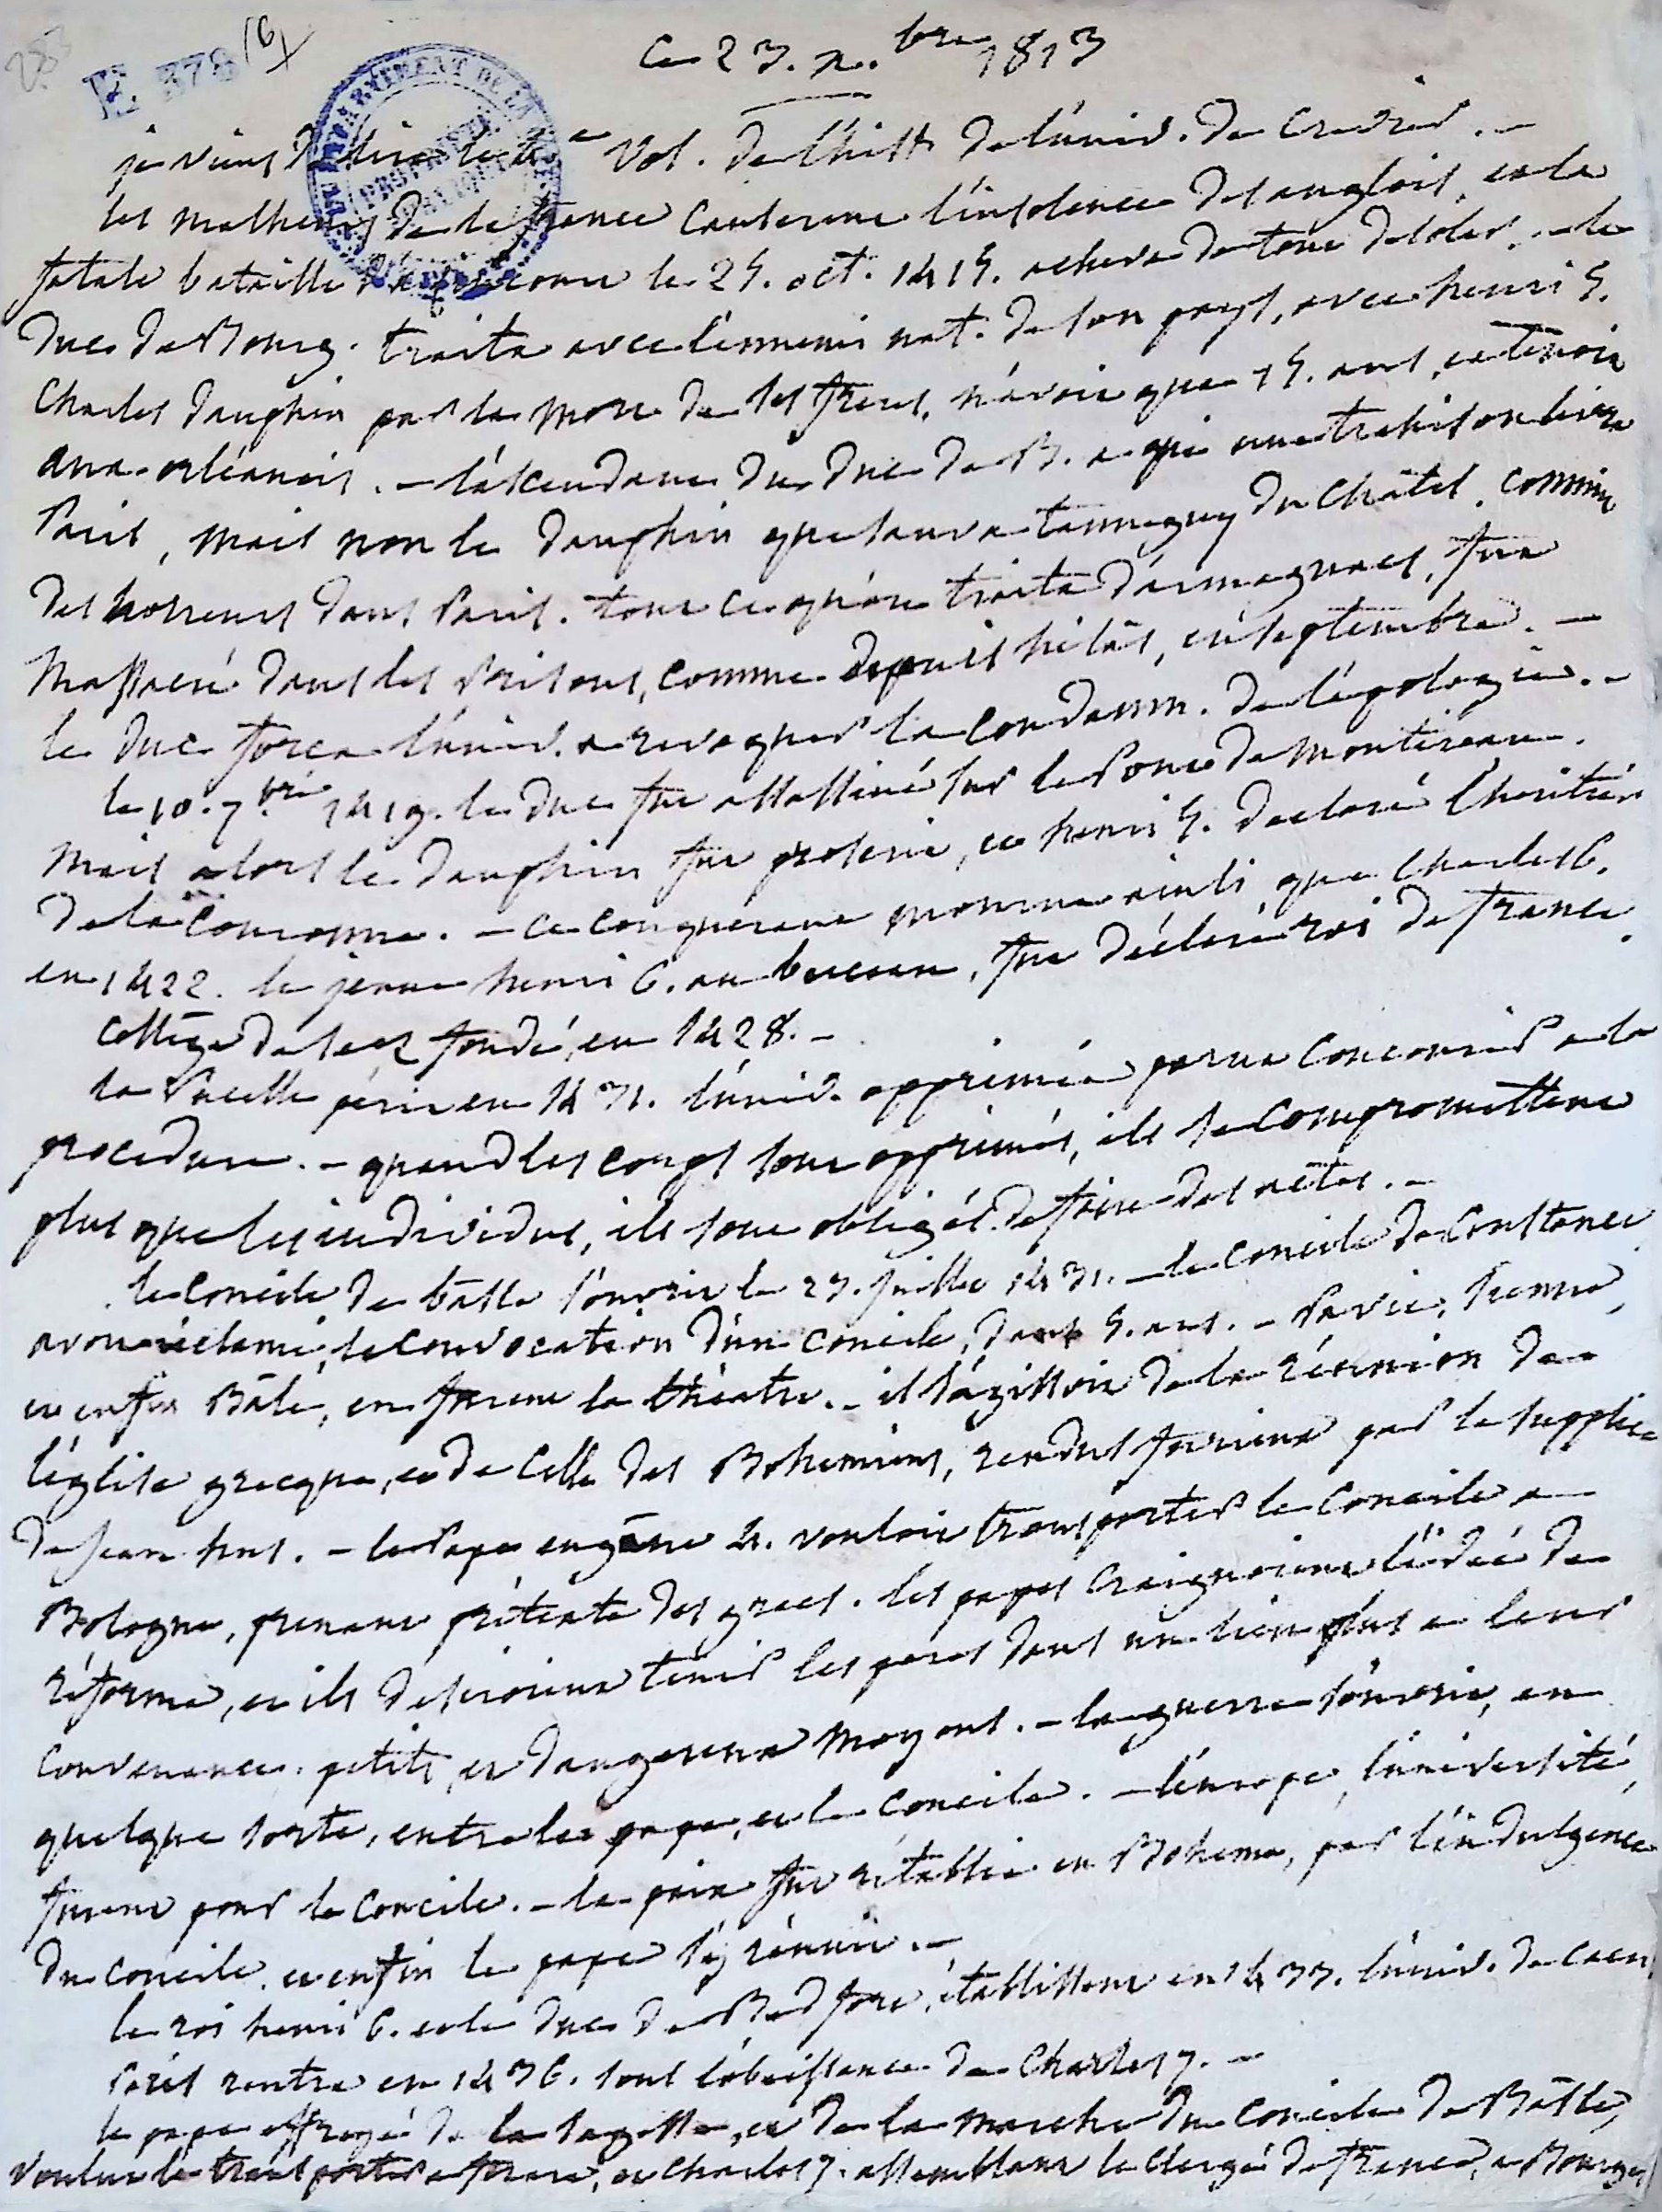 E 378 (6)
Ce 23. 9.bre 1813
je viens de lire le 4e vol. de l'hist. de l'univ. de Crevier. -
les malheurs de la france causerent l'insolence des anglois, et la
fatale bataille d'azincour le 25. oct. 1415. acheva de tout desoler. - le
duc de Bourg. traita avec l'ennemi nat. de son pays, avec henri 5.
Charles dauphin par la mort de ses freres, n'avoit que 15. ans, et tenoit
aux orléanois. - l'ascendant du duc de B. a qui une trahison livra
Paris, mais non le dauphin que sauva tannegui du Châtel. commit
des horreurs dans Paris. tout ce qu'on traita d'armagnacs, fut
massacré dans les prisons, comme depuis hélas, en septembre. -
le duc força l'univ. a revoquer la condamn. de l'apologie. -
le 10. 7.bre 1419. le duc fut assassiné sur le Pont de Montereau.
mais alors le dauphin fut proscrit, et henri 5. declaré l'heritier
de la Couronne. - ce conquerant mourut ainsi que Charles 6.
en 1422. le jeune henri 6. au berceau, fut déclaré roi de france.
Collège de seez fondé, en 1428. -
la Pucelle périt en 1431. l'univ. opprimée parut concourir a la
procedure. - quand les corps sont opprimés, ils se compromettent
plus que les individus, ils sont obligés de faire des actes. -
le concile de basle s'ouvrit le 23. juillet 1431. - le concile de Constance
avoit réclamé, la convocation d'un concile, dans 5. ans. - Pavie, Sienne,
et enfin Bâle, en furent le théatre. - il s'agissoit de la réunion de
l'église grecque, et de celle des Bohemiens, rendus furieux par le supplice
de jean hus. - le Pape eugène 4. vouloit transporter le concile a
Bologne, prenant prétexte des grecs. les papes craignoient l'idée de
réforme, et ils desiroient tenir les peres dans un lieu plus a leur
convenance. petits, et dangereux moyens. - la guerre s'ouvrit, en
quelque sorte, entre le pape, et le concile. - l'europe, l'université,
furent pour le concile. - la paix fut rétablie en Boheme, par l'indulgence
du concile. et enfin le pape s'y réunit. -
le roi henri 6. et le duc de Bedford, établissent en 1433. l'univ. de Caen.
Paris rentre en 1436. sous l'obeissance de Charles 7. -
le pape effrayé de la sagesse, et de la marche du concile de Basle,
voulut le transporter a ferrare, et Charles 7. assemblant le clergé de france, a Bourges